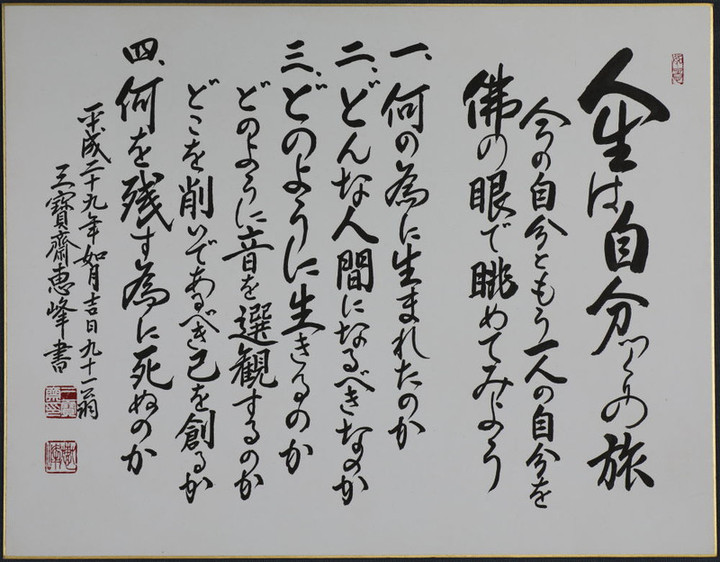 人生は自分づくりの旅
今の自分ともう一人の自分を
佛の眼で眺めてみよう
一、何の為に生まれたのか
二、どんな人間になるべきなのか
三、どのように生きるのか
どのように音を選観するのか
どこを削いであるべき己を創るか
四、何を残す為に死ぬのか
平成二十九年如月吉日九十一翁
三寳齋惠峰書